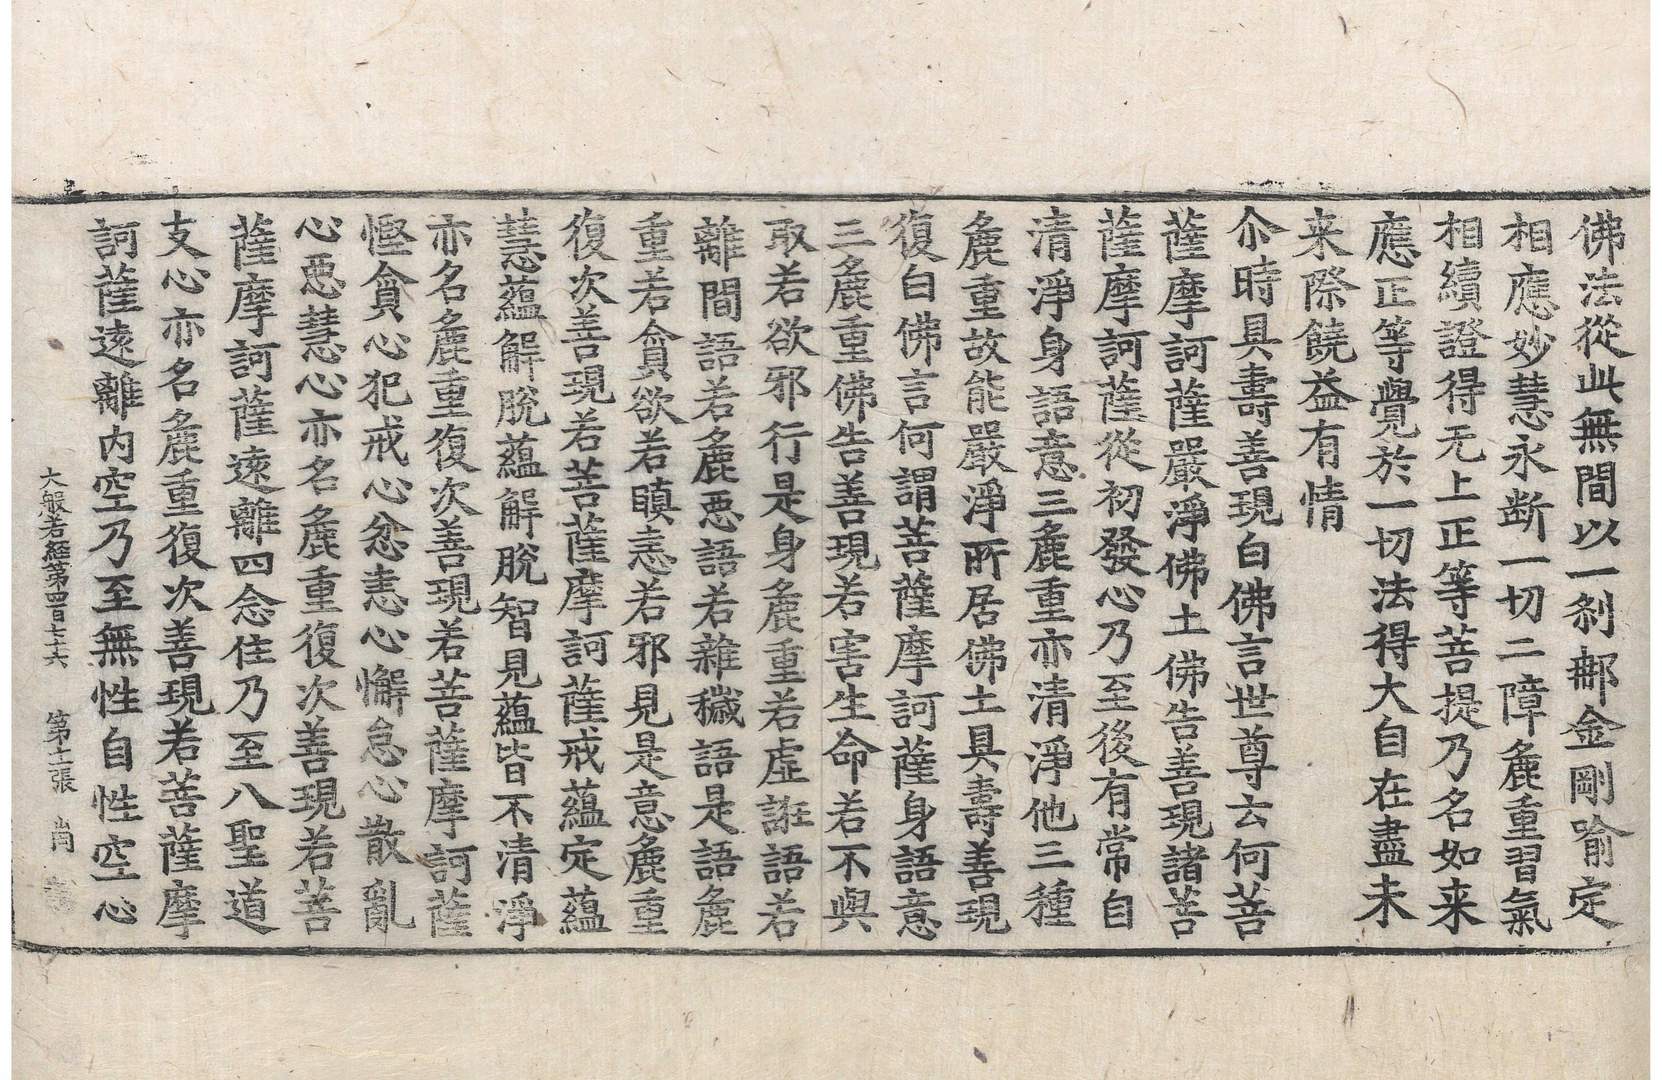 佛法從此無間以一刹那金剛喻定
相應妙慧永断一切二障麁重習氣
相續證得无上正等菩提乃名如来
應正等覺於一切法得大自在盡未
来際饒益有情
尒時具壽善現白佛言世尊云何菩
薩摩訶薩嚴淨佛土佛告善現諸菩
薩摩訶薩從初發心乃至後有常自
清淨身語意三麁重亦清淨他三種
麁重故能嚴淨所居佛土具壽善現
復白佛言何謂菩薩摩訶薩身語意
三麁重佛告善現若害生命若不與
取若欲邪行是身麁重若虛誑語若
離間語若麁惡語若雜穢語是語麁
重若貪欲若瞋恚若邪見是意麁重
復次善現若菩薩摩訶薩戒蘊定蘊
慧蘊解脫蘊解脫智見蘊皆不清淨
亦名麁重復次善現若菩薩摩訶薩
慳貪心犯戒心忿恚心懈怠心散亂
心惡慧心亦名麁重復次善現若菩
薩摩訶薩遠離四念住乃至八聖道
支心亦名麁重復次善現若菩薩摩
訶薩遠離內空乃至無性自性空心
大般若経第四百七十六 第十二張 崗